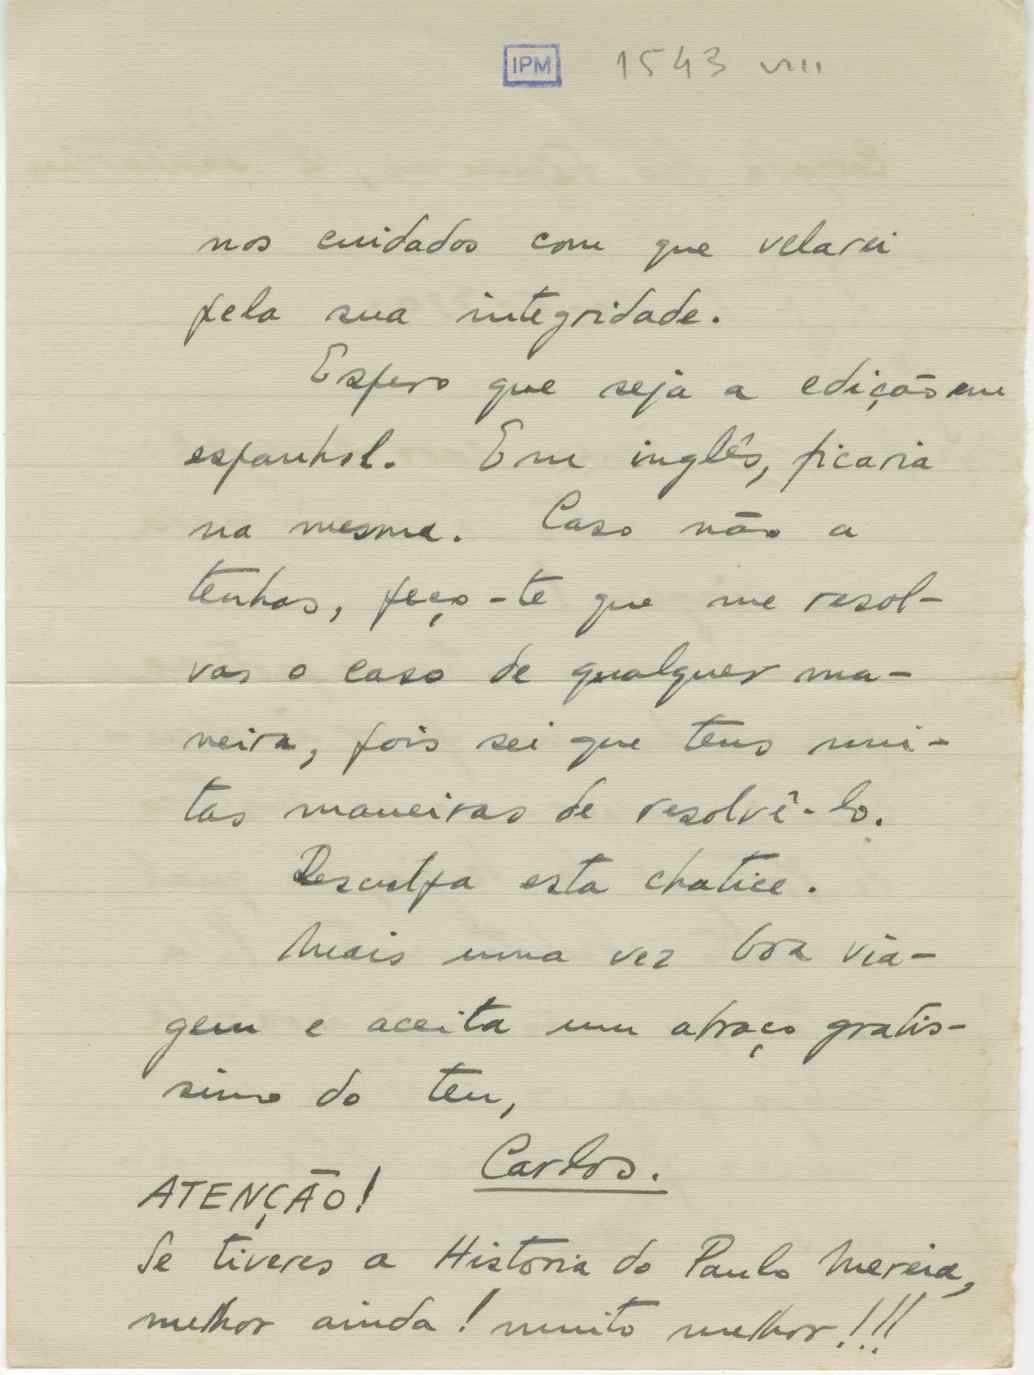 IPM 1543 VIII
nos cuidados com que velarei
pela sua integridade.
Espero que seja a edição em
espanhol. Em inglês, ficaria
na mesma. Caso não a
tenhas, peço-te que me resol-
vas o caso de qualquer ma-
neira, pois sei que tens mui-
tas maneiras de resolvê-lo.
Desculpa esta chatice.
Mais uma vez boa via-
gem e aceita um abraço gratis-
simo do teu,
Carlos.
ATENÇÃO!
Se tiveres a Historia do Paulo Mereia,
melhor ainda! muito melhor!!!